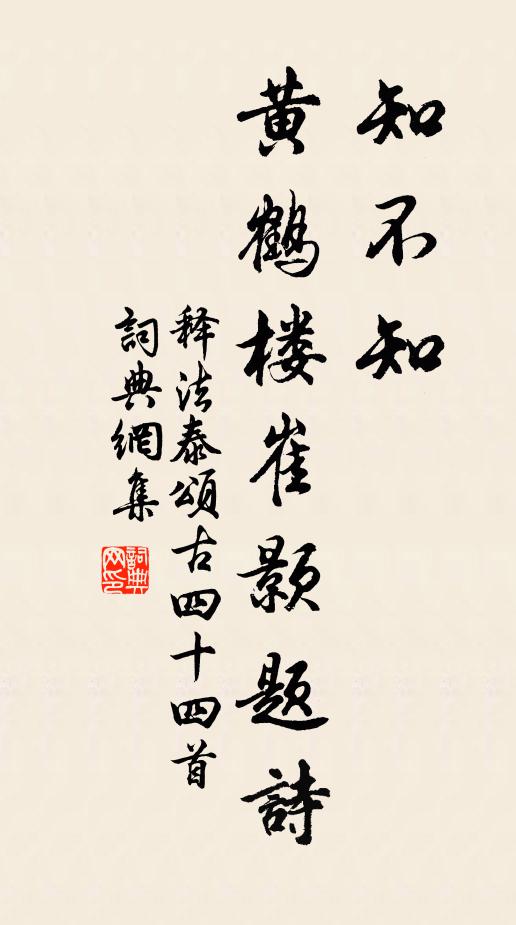 知不知
黄鹤楼崔颢题詩
释法泰頌古四十四首
詞典網集
詞典
网印